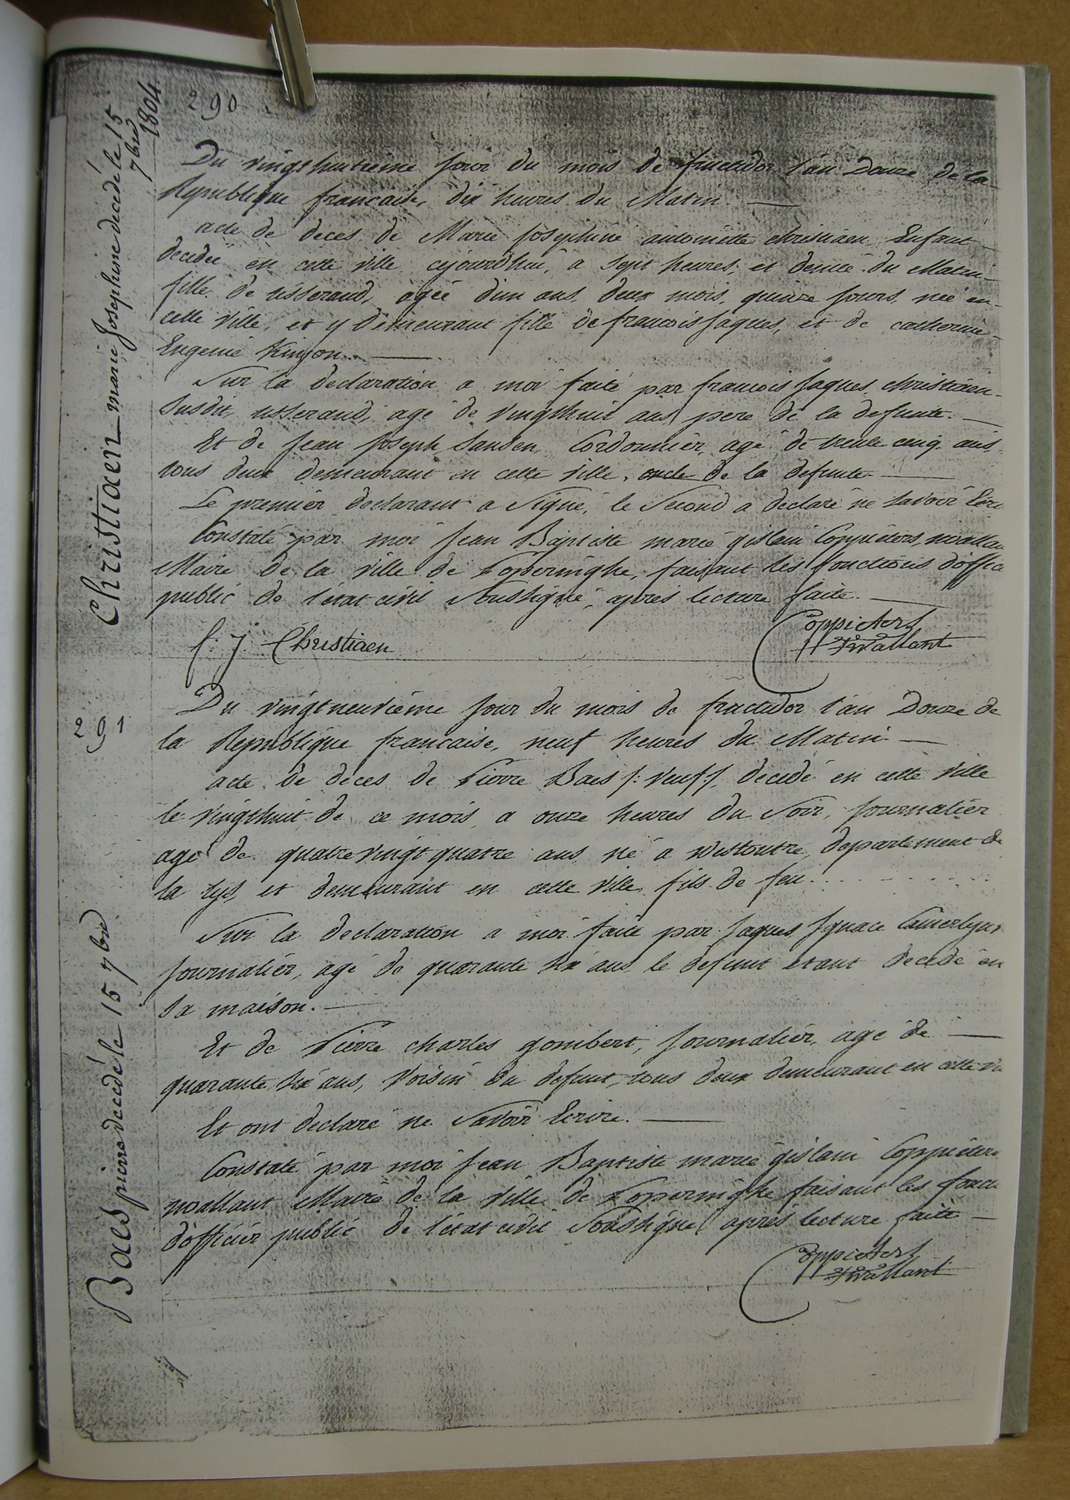 290
Christiaen marie Josephine décédé le 15
7bre
1804
Du vingthuitieme jour du mois de fructidor l'an Douze de la
Republique francaise, dix heures du Matin.
acte de deces de Marie Josephine antoinette christiaen Enfant
decedée en cette ville cejourdhui, a sept heures, et demie du Matin
fille de tisserand, agée d'un ans deux mois quinze jours née en
cette ville, et y Demeurant fille de francois Jaques, et de catherine
Eugenie
Sur la declaration a moi faite par francois Jaques christiaen
susdit tisserand, agé de vingthuit ans pere de la defunte.
Et de Jean Joseph Cordonnier, agé de trente cinq ans,
tous deux demeurant en cette ville, oncle de la defunte
Le premier declarant a signé, le second a declaré ne savoir Ecri
Constaté par moi Jean Baptiste marie gislain Coppieters
Maire de la ville de Poperinghe, faisant les fonctions d'offic
public de l'état civil Soussigné, apres lecture faite.
f: j: Christiaen
Coppieters
7Wallant
291
Baes pierre décédé le 15 7bre
Du vingtneuvieme jour du mois de fructidor l'an Douze de
la Republique francaise, neuf heures du Matin
acte de deces de Pierre Baes /: Veuf :/, decedé en cette ville
le vingthuit de ce mois, a onze heures du Soir, journalier
agé de quatrevingt quatre ans né a Westoutre, departement de
la lys, et demeurant en cette ville fils de feu
Sur la declaration a moi faite par Jaques Ignace
journalier, agé de quarante six ans, le defunt etant decedé en
sa maison.
Et de Pierre charles gombert, journalier, agé de
quarante six ans, Voisin du defunt, tous deux demeurant en cette vi
Et ont declaré ne Savoir Ecrire.
Constaté par moi Jean Baptiste marie gislain Coppieters
Maire de la ville de Poperinghe faisant les fonct
d'officier public de l'état civil Soussigné apres lecture faite
Coppieters
7Wallant